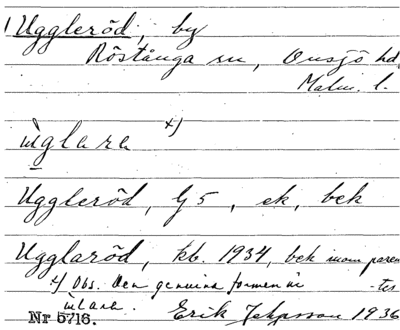 1) Uggleröd, by
Röstånga sn, Onsjö hd,
Malm. l.
ùglara x)
Uggleröd, G5, ek, bek
Ugglaröd, kb. 1934, bek inom paren-
x) Obs. Den genuina formen är -tes
ùlara.
Nr 5716. Erik Jeppsson 1936